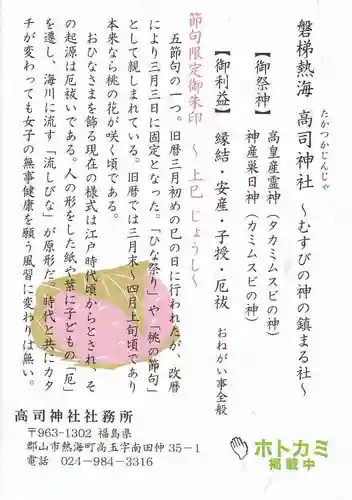 磐梯熱海 高司神社 ～むすびの神の鎮まる社～
たかつかじんじゃ
【御祭神】
高皇産霊神(タカミムスビの神)
神産巣日神(カミムスビの神)
【御利益】 縁結・安産・子授・厄祓 おねがい事全般
節句限定御朱印 ～上巳 じょうし～
五節句の一つ。旧暦三月初めの巳の日に行われたが、改暦
により三月三日に固定となった。「ひな祭り」や「桃の節句」
として親しまれている。旧暦では三月末～四月上旬頃であり
本来なら桃の花が咲く頃である。
おひなさまを飾る現在の様式は江戸時代頃からとされ、そ
の起源は厄祓いである。人の形をした紙や葉に子どもの「厄」
を遷し、海川に流す「流しびな」が原形だ。時代と共にカタ
チが変わっても女子の無事健康を願う風習に変わりは無い。
高司神社社務所
〒963-1302 福島県
郡山市熱海町高玉字南田仲35-1
電話 024-984-3316
ホトカミ
掲載中